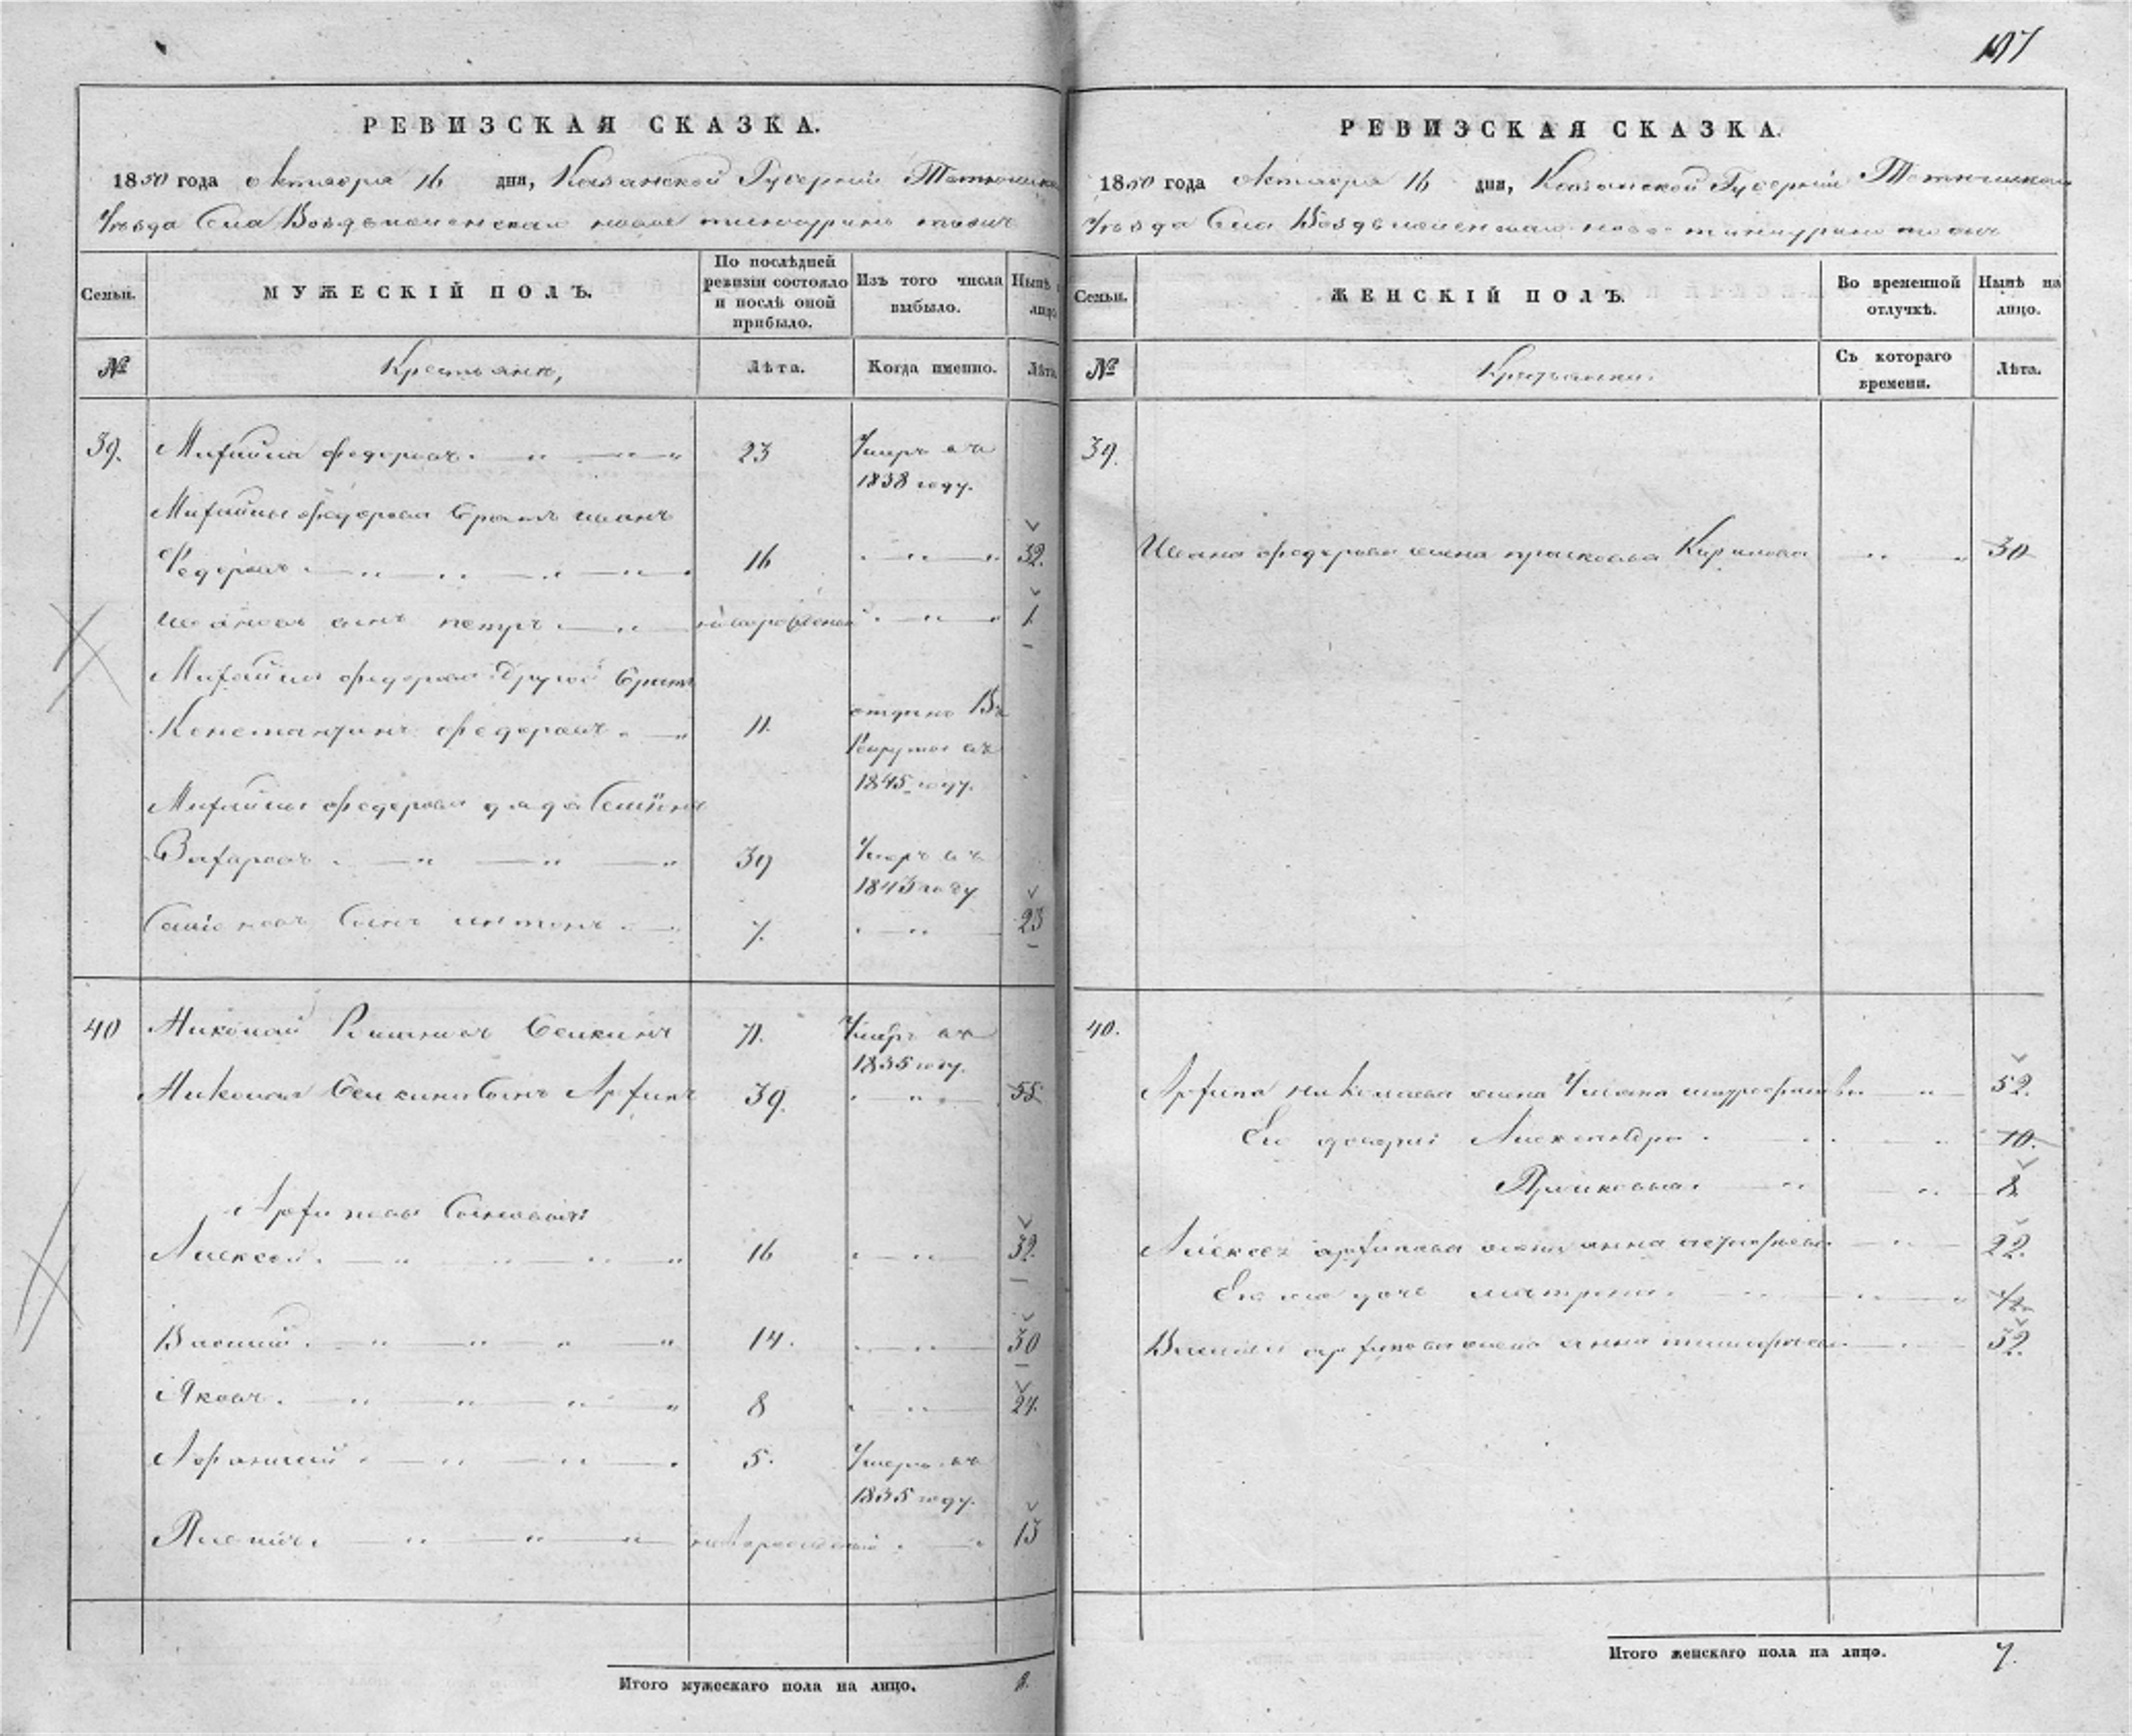 197
РЕВИЗСКАЯ СКАЗКА.
1850 года октября 16 дня, Казанской Губернии Тетюшска
Уѣзда Села Воздвиженскаго
Семьи.
МУЖЕСКІЙ ПОЛЪ.
По послѣдней ревизіи состояло и послѣ оной прибыло.
Изъ того числа выбыло.
Нынѣ лицо
№
Крестьяне,
Лѣта.
Когда именно.
Лѣта
39.
Михайла федоровъ 23 Умеръ въ
1838 году.
Михайлы федорова братъ иванъ
Федоровъ 16 32.
ивановъ сынъ петръ 1.
Михайлы федорова другой братъ
Константинъ федоровъ 11. отданъ Въ
Рекруты въ
1845 году.
Михайлы федорова дядя Семёнъ
Захаровъ 39 Умеръ въ
1843 году
Семёновъ Сынъ антонъ 7. 23
40 Николай Селкинъ 71. Умеръ въ
1835 году.
Николая Селкина Сынъ Архипъ 39. 55
Архиповы Сыновья
Алексей 16 32.
Василий 14. 30
Яковъ 8 24.
Афанасий 5. Умеръ въ
1835 году.
13
Итого мужескаго пола на лицо. 8.
РЕВИЗСКАЯ СКАЗКА.
1850 года Октября 16 дня, Казанской Губернии Тетюшскаго
Уѣзда Села Воздвиженскаго
Семьи.
ЖЕНСКІЙ ПОЛЪ.
Во временной отлучкѣ.
Нынѣ на лицо.
№
Крестьянки.
Съ котораго времени.
Лѣта.
39.
Ивана федорова жена прасковья Кирилова 30
40.
Архипа николаева жена 52.
Ея дочери Александра 10.
Прасковья 8
Алексея архипова жена анна 22.
дочь матрена
Василья архипова жена анна 32.
Итого женскаго пола на лицо. 7.